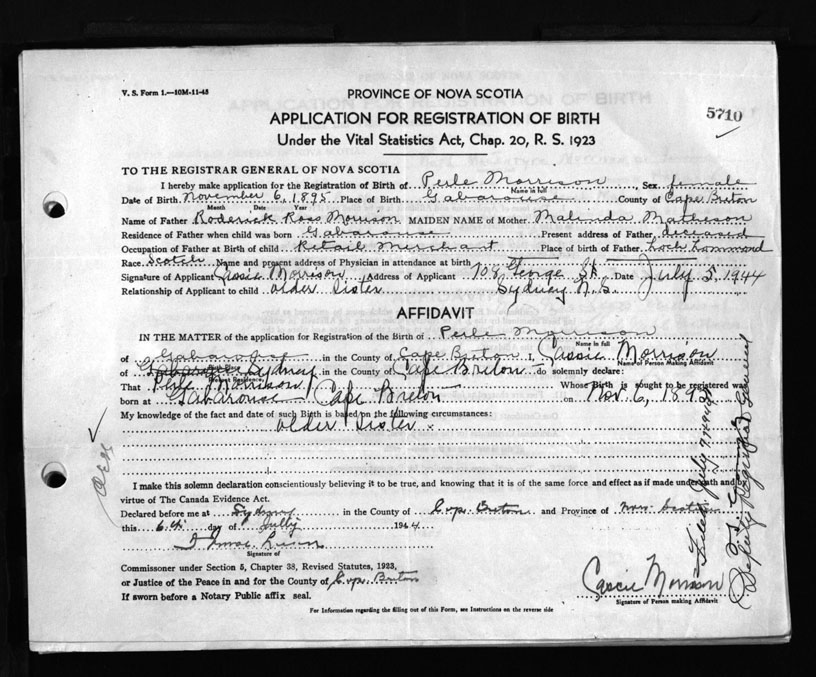 V. S. Form 1.—10M-11-43
PROVINCE OF NOVA SCOTIA
5710
APPLICATION FOR REGISTRATION OF BIRTH
Under the Vital Statistics Act, Chap. 20, R. S. 1923
TO THE REGISTRAR GENERAL OF NOVA SCOTIA
I hereby make application for the Registration of Birth of Perle Morrison, Sex female
Name in full
Date of Birth November 6, 1895 Place of Birth Gabarouse County of Cape Breton
Month Date Year
Name of Father Roderick Ross Morrison MAIDEN NAME of Mother Malinda Matheson
Residence of Father when child was born Gabarouse Present address of Father, deceased
Occupation of Father at Birth of child Retail Merchant Place of birth of Father, Loch Lommond
Race Scotch Name and present address of Physician in attendance at birth
Signature of Applicant Cassie Morrison Address of Applicant 708 George St. Date July 5, 1944
Relationship of Applicant to child older sister Sydney N.S.
AFFIDAVIT
IN THE MATTER of the application for Registration of the Birth of Perle Morrison
Name in full
of Gabarouse in the County of Cape Breton I, Cassie Morrison
Name of Person Making Affidavit
of Sydney in the County of Cape Breton do solemnly declare:
Present Residence.
That Perle Morrison Whose Birth is sought to be registered was
born at Gabarouse, Cape Breton on Nov. 6, 1895
My knowledge of the fact and date of such Birth is based on the following circumstances:
older sister.
I make this solemn declaration conscientiously believing it to be true, and knowing that it is of the same force and effect as if made under oath and by
virtue of The Canada Evidence Act.
Declared before me at Sydney in the County of Cape Breton and Province of Nova Scotia
this 6th day of July 1944
Signature of
Commissioner under Section 5, Chapter 38, Revised Statutes, 1923,
or Justice of the Peace in and for the County of Cape Breton
If sworn before a Notary Public affix seal.
Cassie Morrison
Signature of Person making Affidavit
For Information regarding the filling out of this Form, see Instructions on the reverse side
Filed July
Deputy Registrar General